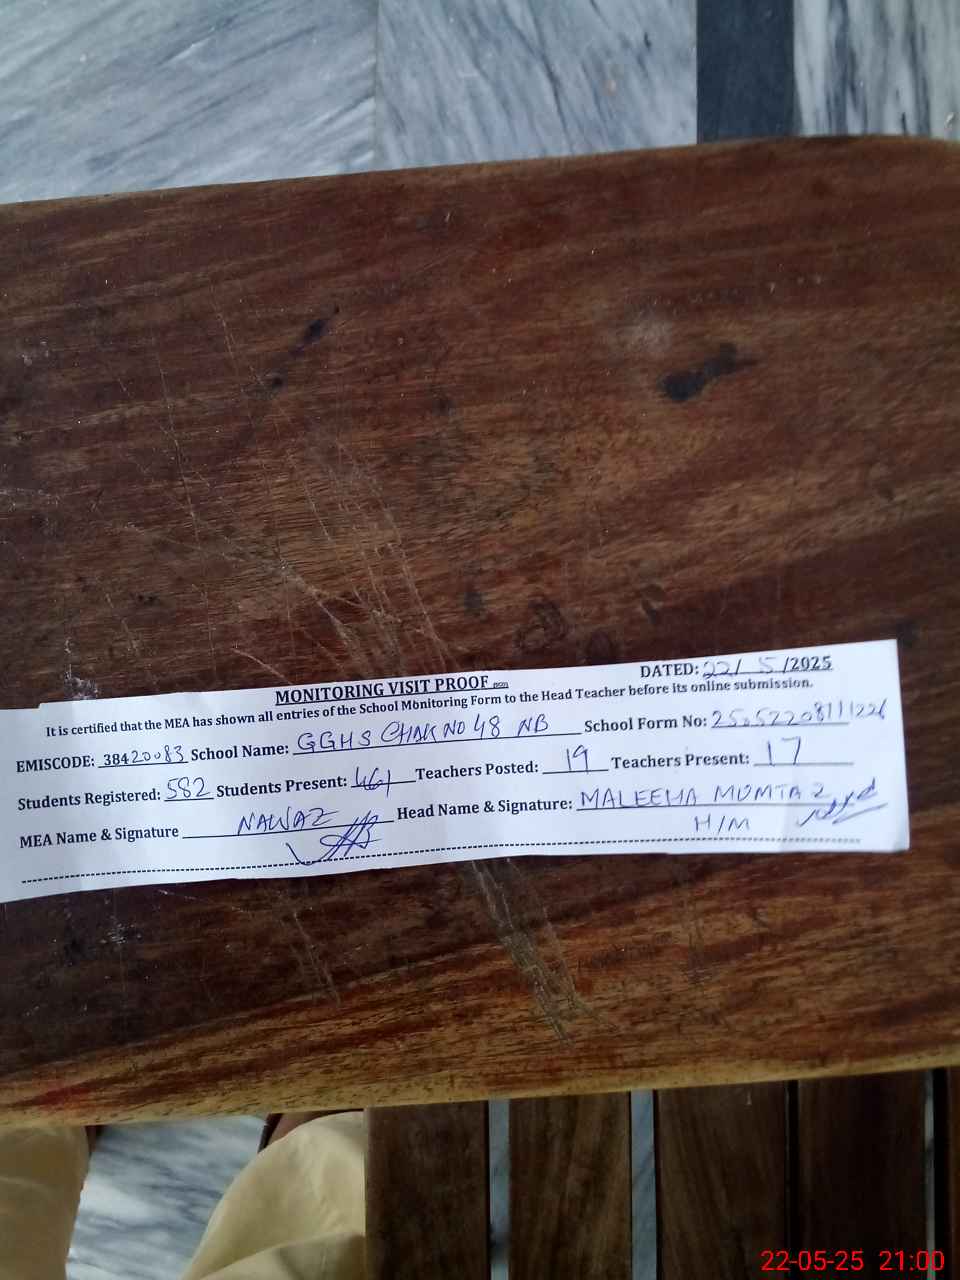 MONITORING VISIT PROOF
DATED: 22/ 5 /2025
It is certified that the MEA has shown all entries of the School Monitoring Form to the Head Teacher before its online submission.
EMISCODE: 38420083 School Name: GGHS CHAK NO 48 NB School Form No:
Students Registered: 582 Students Present: 461 Teachers Posted: 19 Teachers Present: 17
MEA Name & Signature NAWAZ Head Name & Signature: MALEEHA MUMTAZ
H/M
22-05-25 21:00